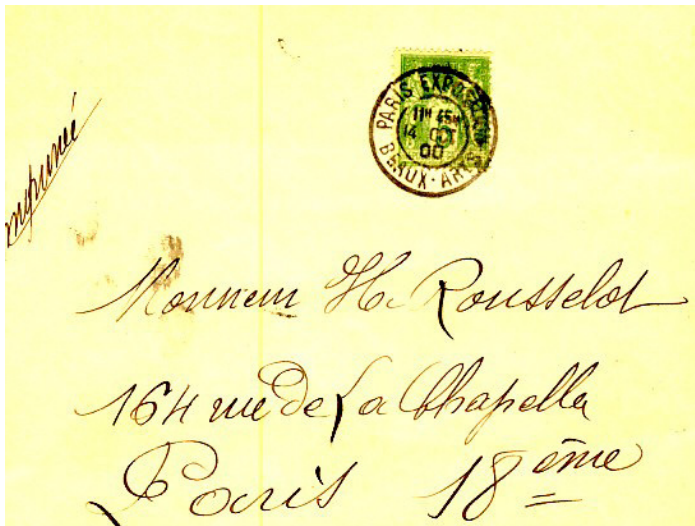 PARIS EXPOSITION
11H 45M
14 OCT
00
BEAUX-ARTS
Monsieur H. Rousselot
164 rue De La Chapelle
Paris 18ème